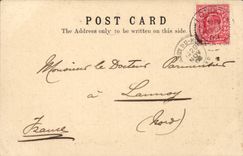 POST CARD
The Address only to be written on this side.
Monsieur le Docteur Parmentier
à Lannoy
(Nord)
France